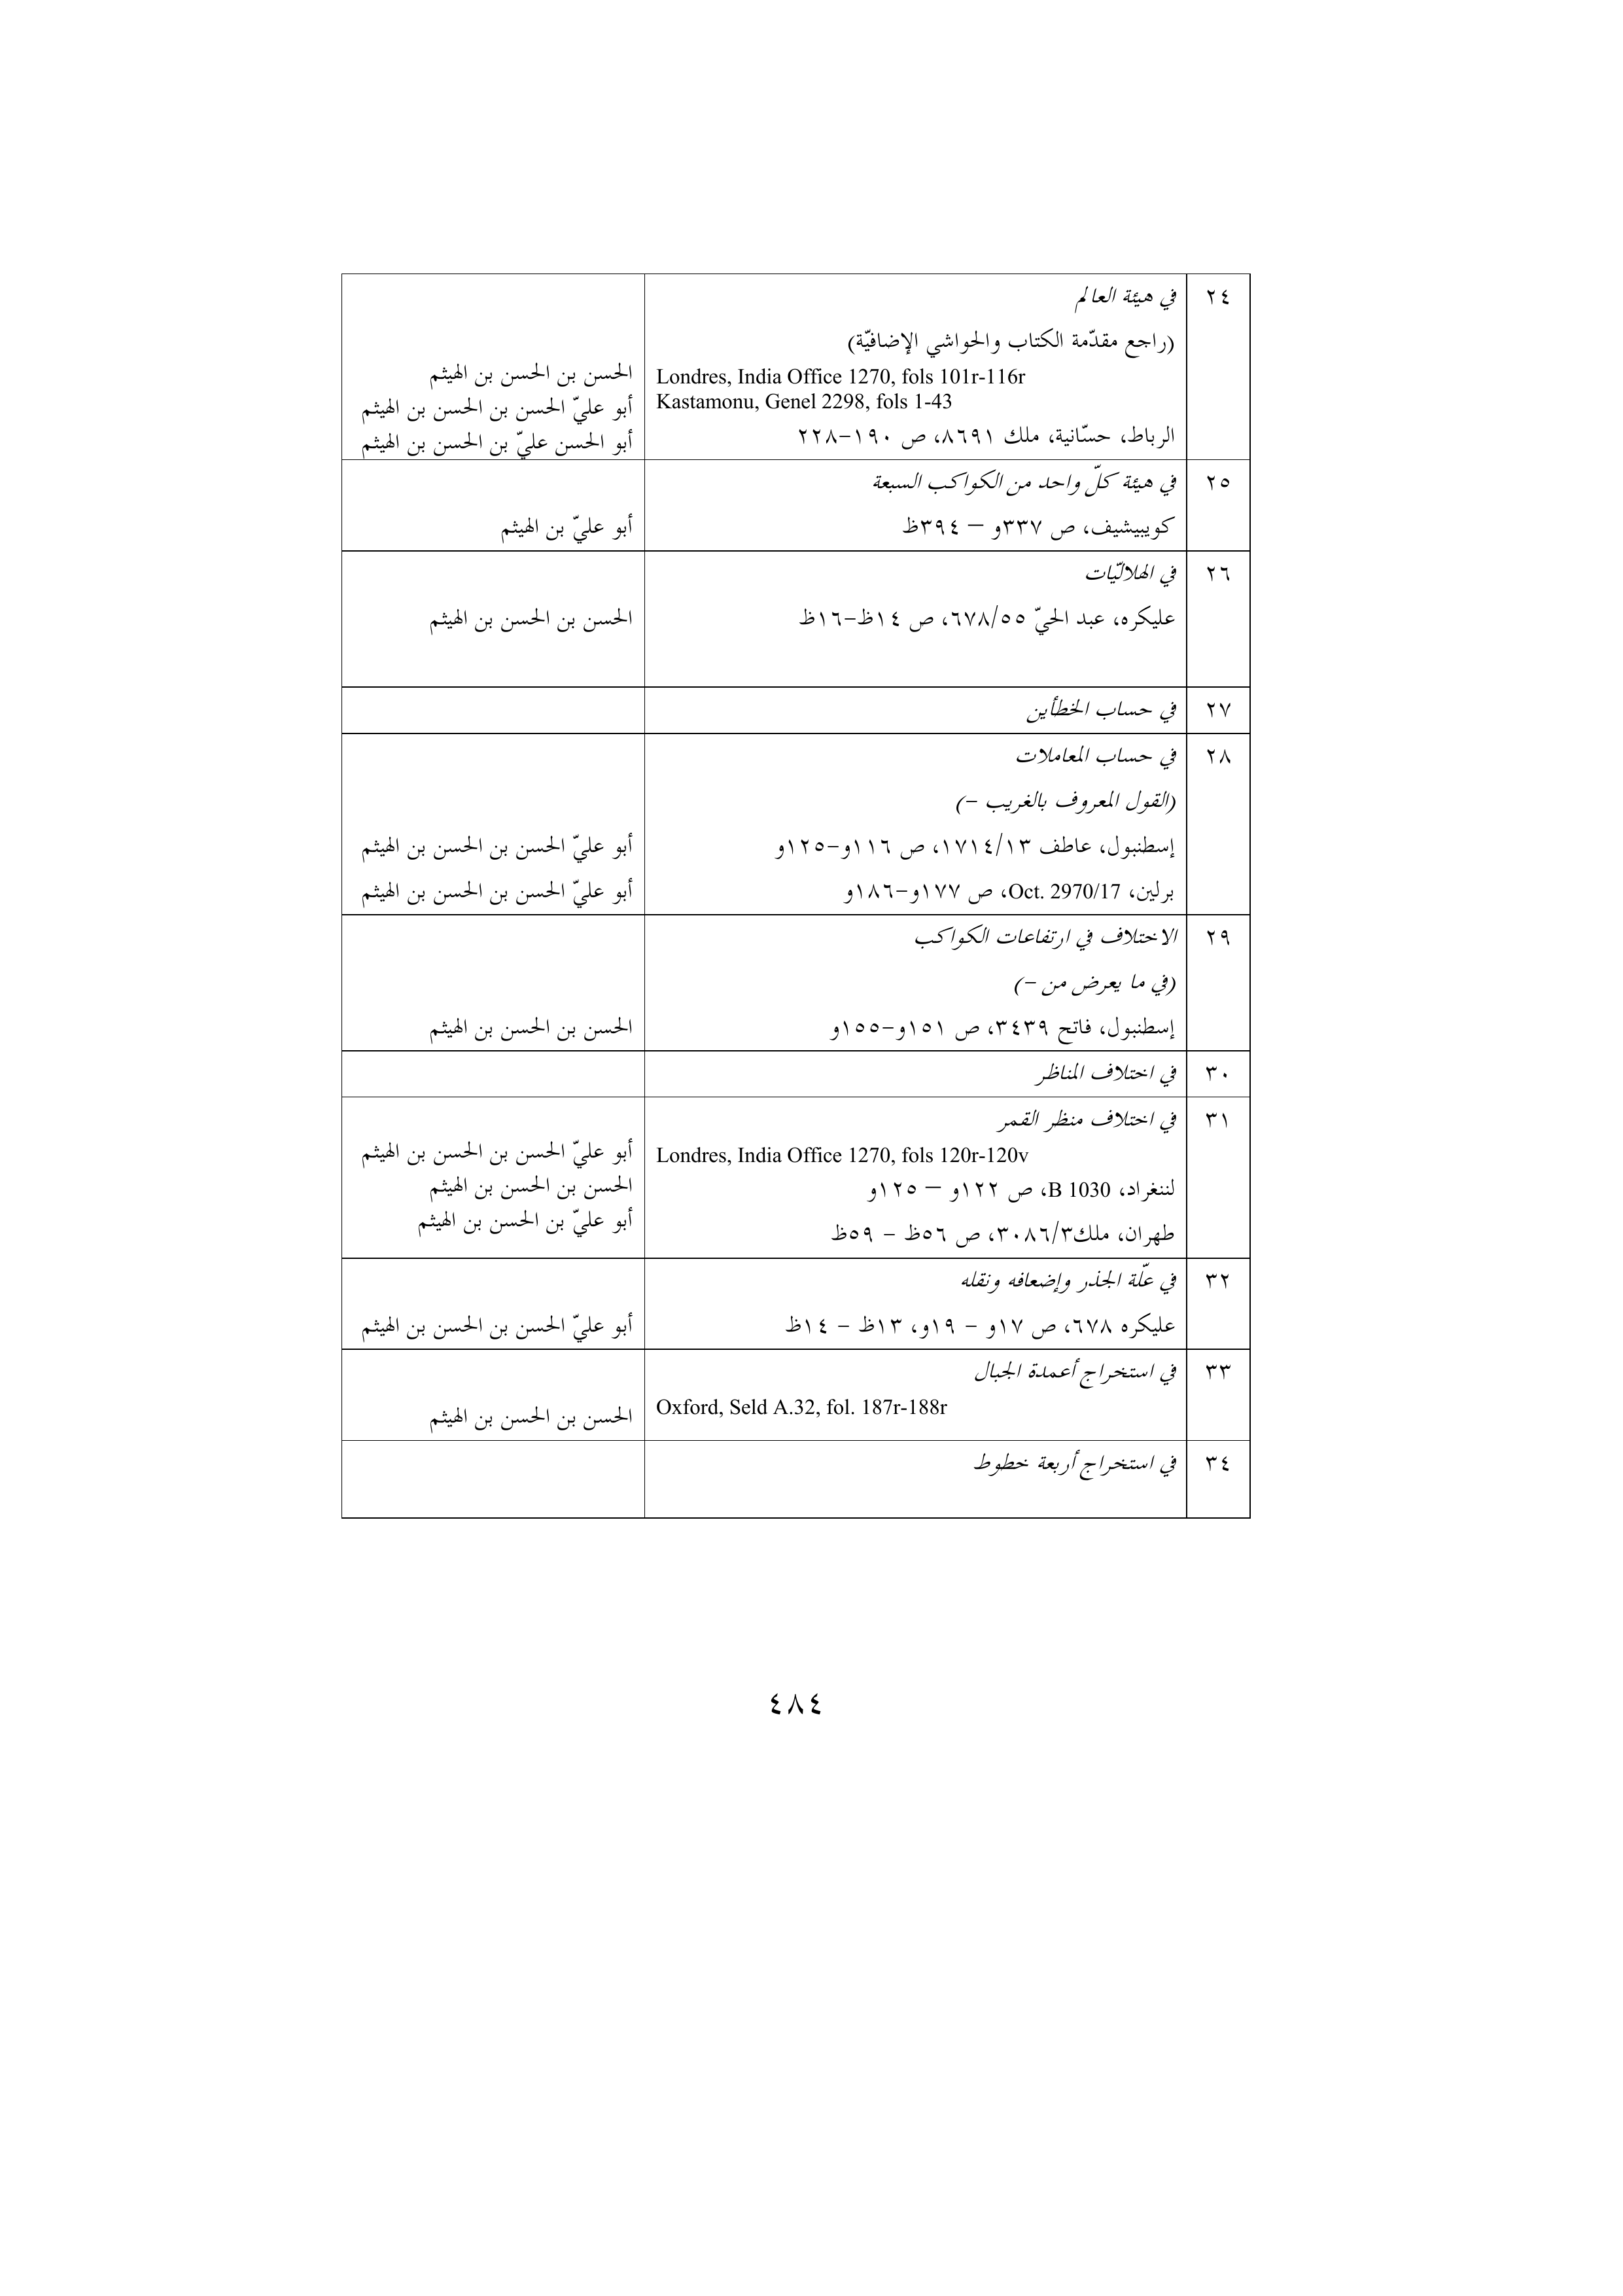 ٢٤
في هيئة العالم
(راجع مقدّمة الكتاب والحواشي الإضافيّة)
Londres, India Office 1270, fols 101r-116r
الحسن بن الحسن بن الهيثم
Kastamonu, Genel 2298, fols 1-43
أبو عليّ الحسن بن الحسن بن الهيثم
الرباط، حسّانية، ملك ٨٦٩١، ص ١٩٠-٢٢٨
أبو الحسن عليّ بن الحسن بن الهيثم
٢٥
في هيئة كلّ واحد من الكواكب السبعة
كويبيشيف، ص ٣٣٧و – ٣٩٤ظ
أبو عليّ بن الهيثم
٢٦
في الهلاليّات
عليكره، عبد الحيّ ٦٧٨/٥٥، ص ١٤ظ-١٦ظ
الحسن بن الحسن بن الهيثم
٢٧
في حساب الخطأين
٢٨
في حساب المعاملات
(القول المعروف بالغريب -)
إسطنبول، عاطف ١٧١٤/١٣، ص ١١٦و-١٢٥و
أبو عليّ الحسن بن الحسن بن الهيثم
برلين، Oct. 2970/17، ص ١٧٧و-١٨٦و
أبو عليّ الحسن بن الحسن بن الهيثم
٢٩
الاختلاف في ارتفاعات الكواكب
(في ما يعرض من -)
إسطنبول، فاتح ٣٤٣٩، ص ١٥١و-١٥٥و
الحسن بن الحسن بن الهيثم
٣٠
في اختلاف المناظر
٣١
في اختلاف منظر القمر
Londres, India Office 1270, fols 120r-120v
أبو عليّ الحسن بن الحسن بن الهيثم
لننغراد، B 1030، ص ١٢٢و – ١٢٥و
الحسن بن الحسن بن الهيثم
طهران، ملك٣٠٨٦/٣، ص ٥٦ظ - ٥٩ظ
أبو عليّ بن الحسن بن الهيثم
٣٢
في علّة الجذر وإضعافه ونقله
عليكره ٦٧٨، ص ١٧و - ١٩و، ١٣ظ - ١٤ظ
أبو عليّ الحسن بن الحسن بن الهيثم
٣٣
في استخراج أعمدة الجبال
Oxford, Seld A.32, fol. 187r-188r
الحسن بن الحسن بن الهيثم
٣٤
في استخراج أربعة خطوط
٤٨٤